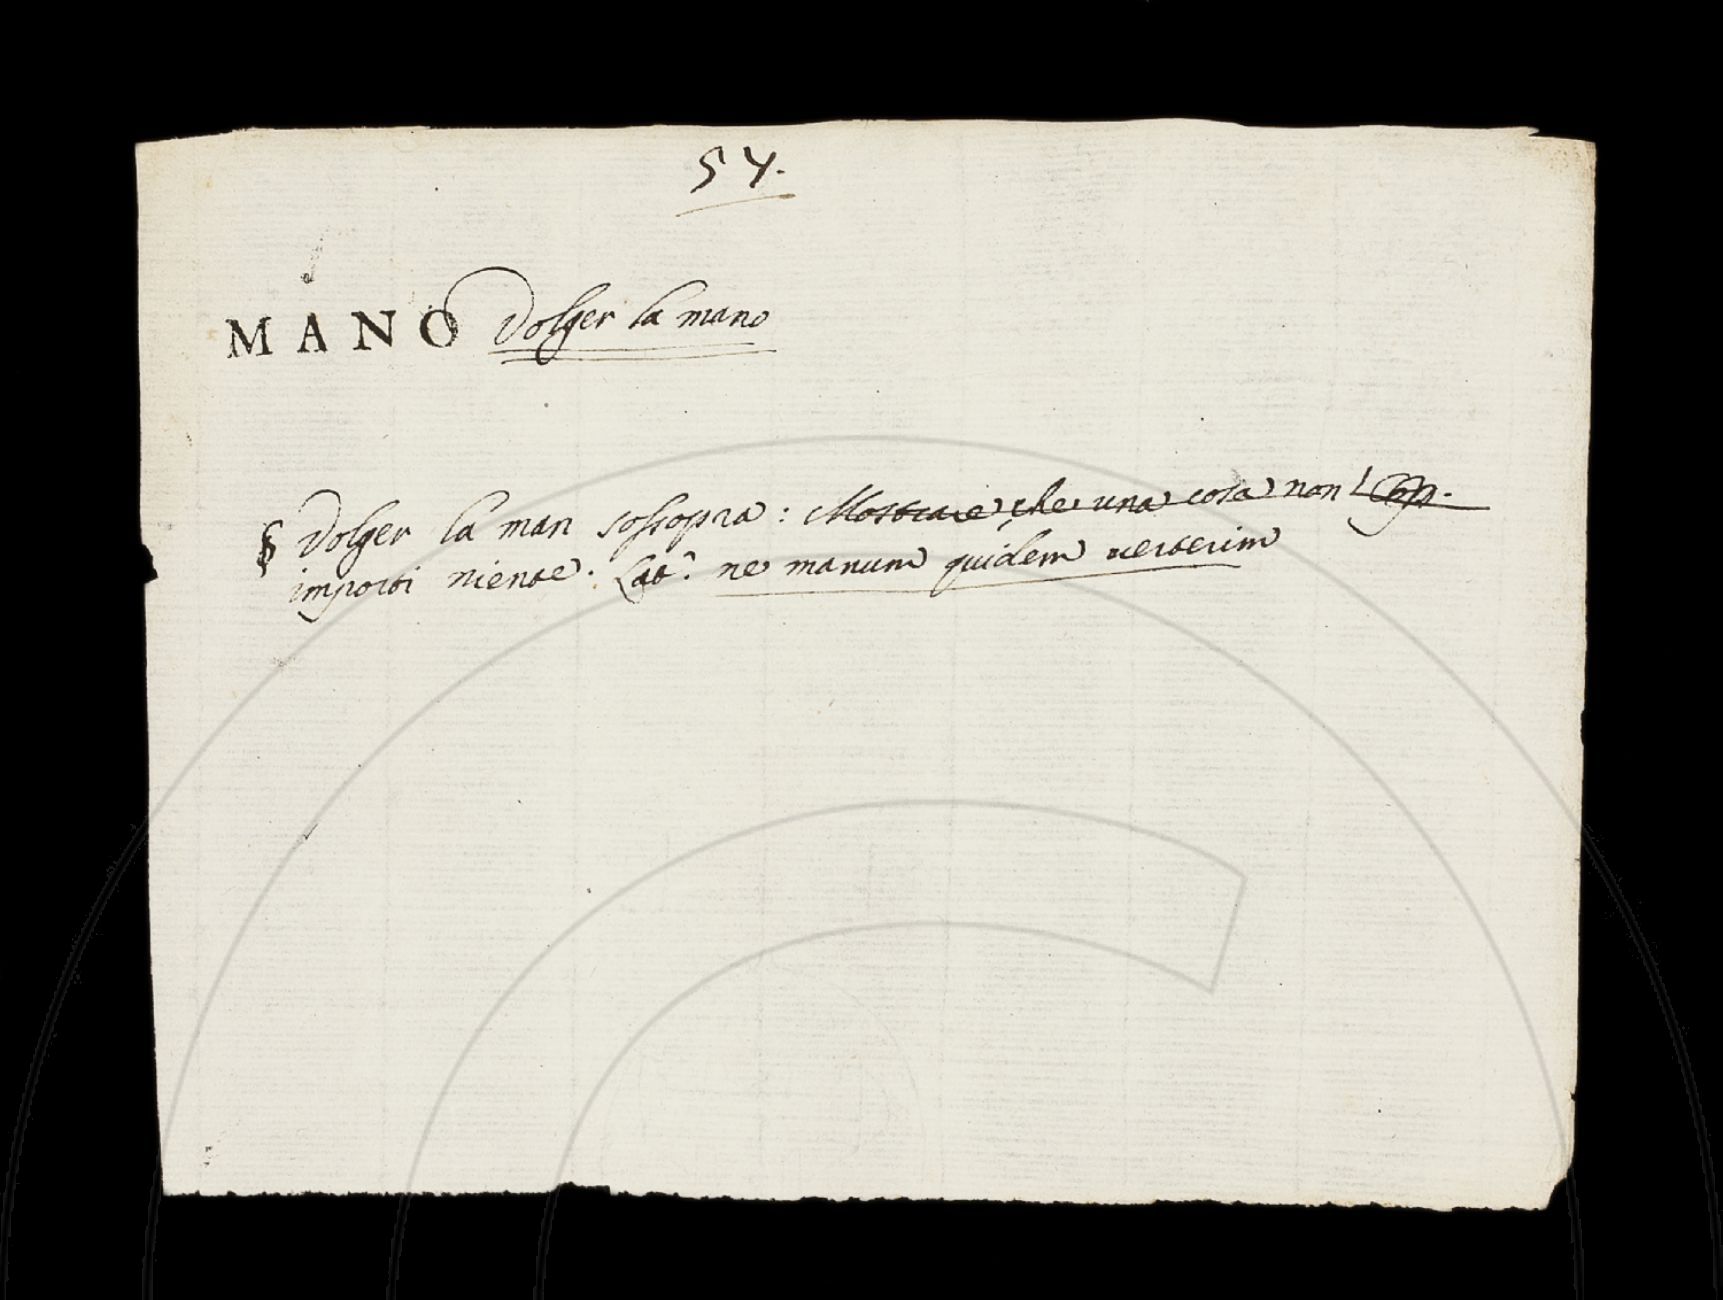 54.
MANO Volger la mano
§ Volger la man sossopra: Mostrare che una cosa non
importi niente. Lat.º ne manum quidem verterim